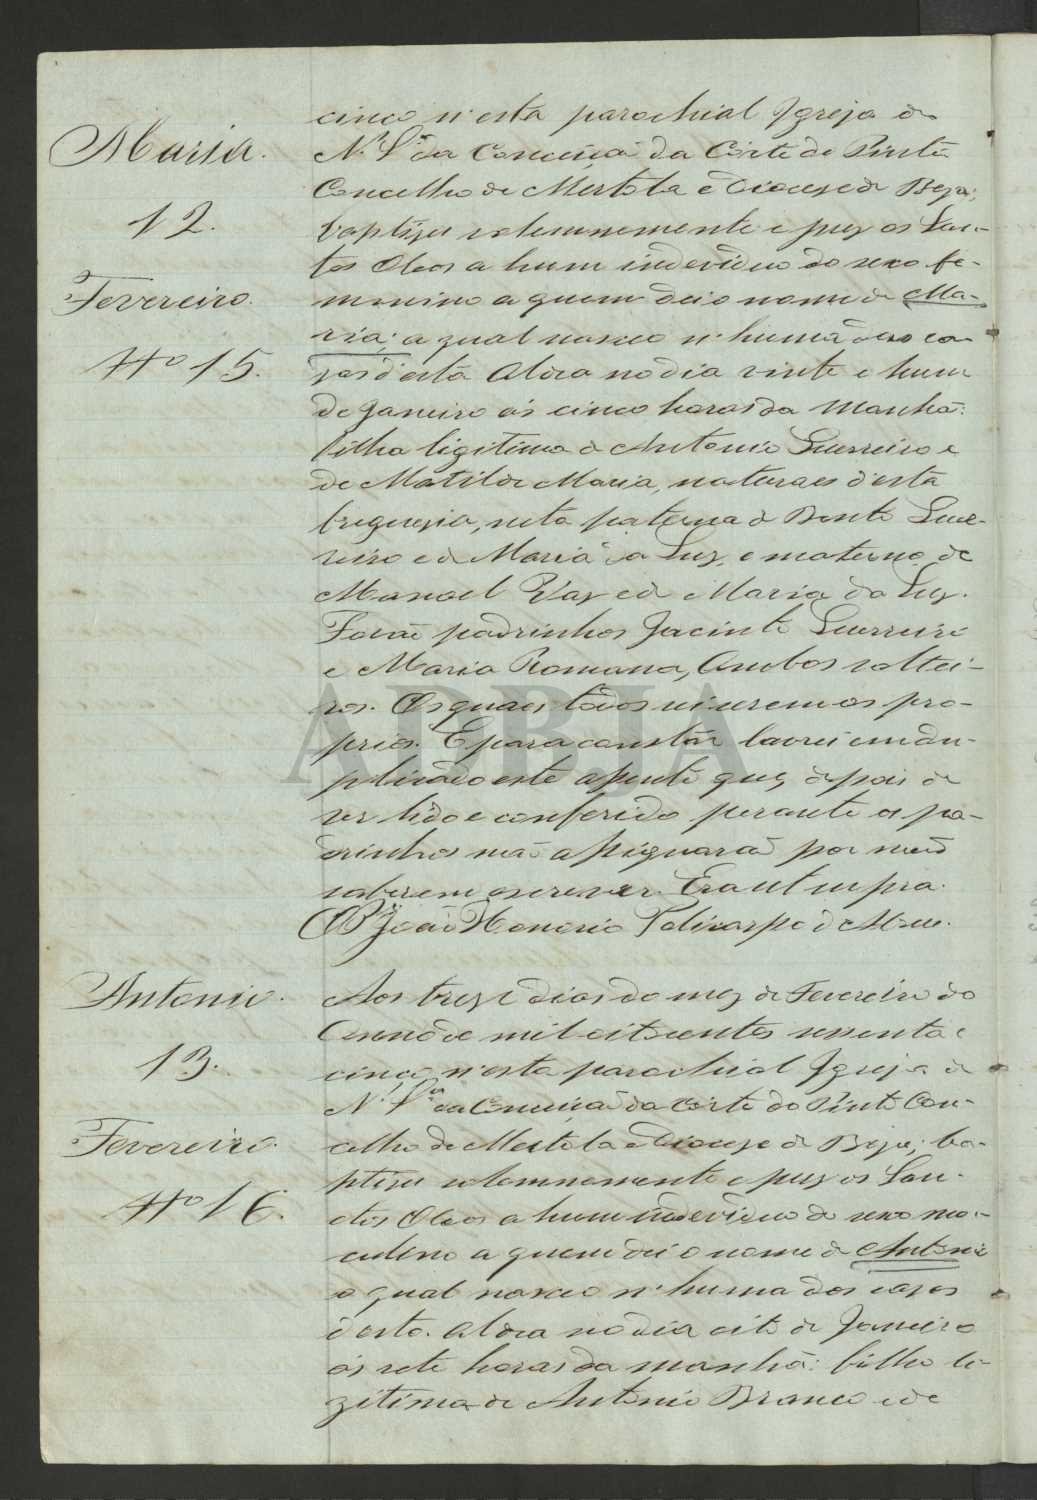 Maria.
12.
Fevereiro.
Nº 15.
cinco n'esta parochial Igreja de
N. Sra. da Conceição da Côrte do Pinto
Concelho de Mertola e Diocese de Beja;
baptisei solemnemente e puz os San-
tos Oleos a hum individuo do sexo fe-
minino a quem dei o nome de Ma-
ria; a qual nasceo n'huma das ca-
zas d'esta Aldea no dia vinte e hum
de Janeiro ás cinco horas da manhã:
filha ligitima de Antonio Guerreiro e
de Matilde Maria, naturaes d'esta
freguesia, neta paterna de Bento Guer-
reiro e de Maria da Luz, e materna de
Manoel Vaz e de Maria da Luz.
Forão padrinhos Jacinto Guerreiro
e Maria Romana, Ambos soltei-
ros. Os quaes todos sei serem os pro-
prios. E para constar lavrei em du-
plicado este assento que, depois de
ser lido e conferido perante os pa-
drinhos não assignarão por não
saberem escrever. Era ut supra.
João Honorio Policarpo de
Antonio.
13.
Fevereiro.
Nº 16.
Aos treze dias do mez de Fevereiro do
Anno de mil oitocentos sessenta e
cinco n'esta parochial Igreja de
N. Sra. da Conceição da Côrte do Pinto Con-
celho de Mertola e Diocese de Beja; ba-
ptisei solemnemente e puz os San-
tos Oleos a hum individuo do sexo mas-
culino a quem dei o nome de Antonio
o qual nasceo n'huma das cazas
d'esta Aldea no dia oito de Janeiro
ás sete horas da manhã: filho le-
gitimo de Antonio Branco e de
ADBJA